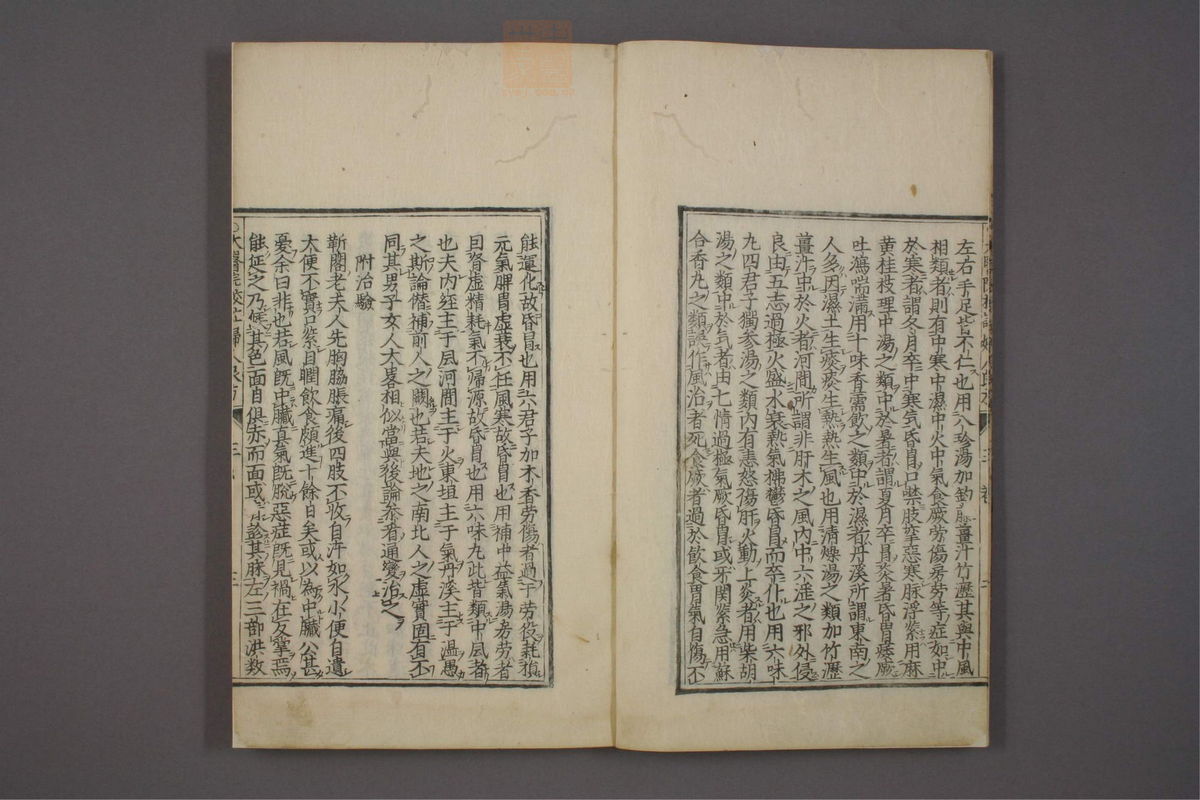 左右手足皆不仁也用八珍湯加鈎藤薑汁竹瀝其與中風
相類者則有中寒中濕中火中氣食厥勞傷房勞等症如中
於寒者謂冬月卒中寒気昏冒口禁肢攣惡寒脉浮緊用麻
黄桂枝理中湯之類中於暑者謂夏月卒冒炎暑昏冒痿厥
吐瀉喘滿用十味香薷飲之類中於濕者丹溪所謂東南之
人多因濕土生痰痰生熱熱生風也用清燥湯之類加竹瀝
薑汁中於火者河間所謂非肝木之風内中六淫之邪外侵
良由五志過極火盛水衰熱氣拂鬱昏冒而卒仆也用六味
九四君子獨參湯之類内有恚怒傷肝火動上炎者用柴胡
湯之類中於気者由七情過極氣厥昏冒或牙関緊急用蘇
合香丸之類誤作風治者死食厥者過於飲食胃氣自傷不
能運化故昏冒也用六君子加木香劳傷者過于劳役耗損
元氣脾胃虚衰不任風寒故昏冒也用補中益氣湯房劳者
因腎虚精耗氣不歸源故昏冒也用六味丸此皆類中風者
也夫内經主于風河間主于火東垣主于氣丹溪主于濕愚
之斯論僭補前人之闕也若夫地之南北人之虚實固有不
同其男子女人大畧相似當與後論叅看通變治之
附治驗
靳閣老夫人先胸脇脹痛後四肢不收自汗如水小便自遺
大便不實口緊目瞤飲食頗進十餘日矣或以為中臟公甚
憂余曰非也若風既中臟真氣既脱惡症既見禍在反掌焉
能延之乃候其色面目俱赤而面或青診其脉左三部洪数